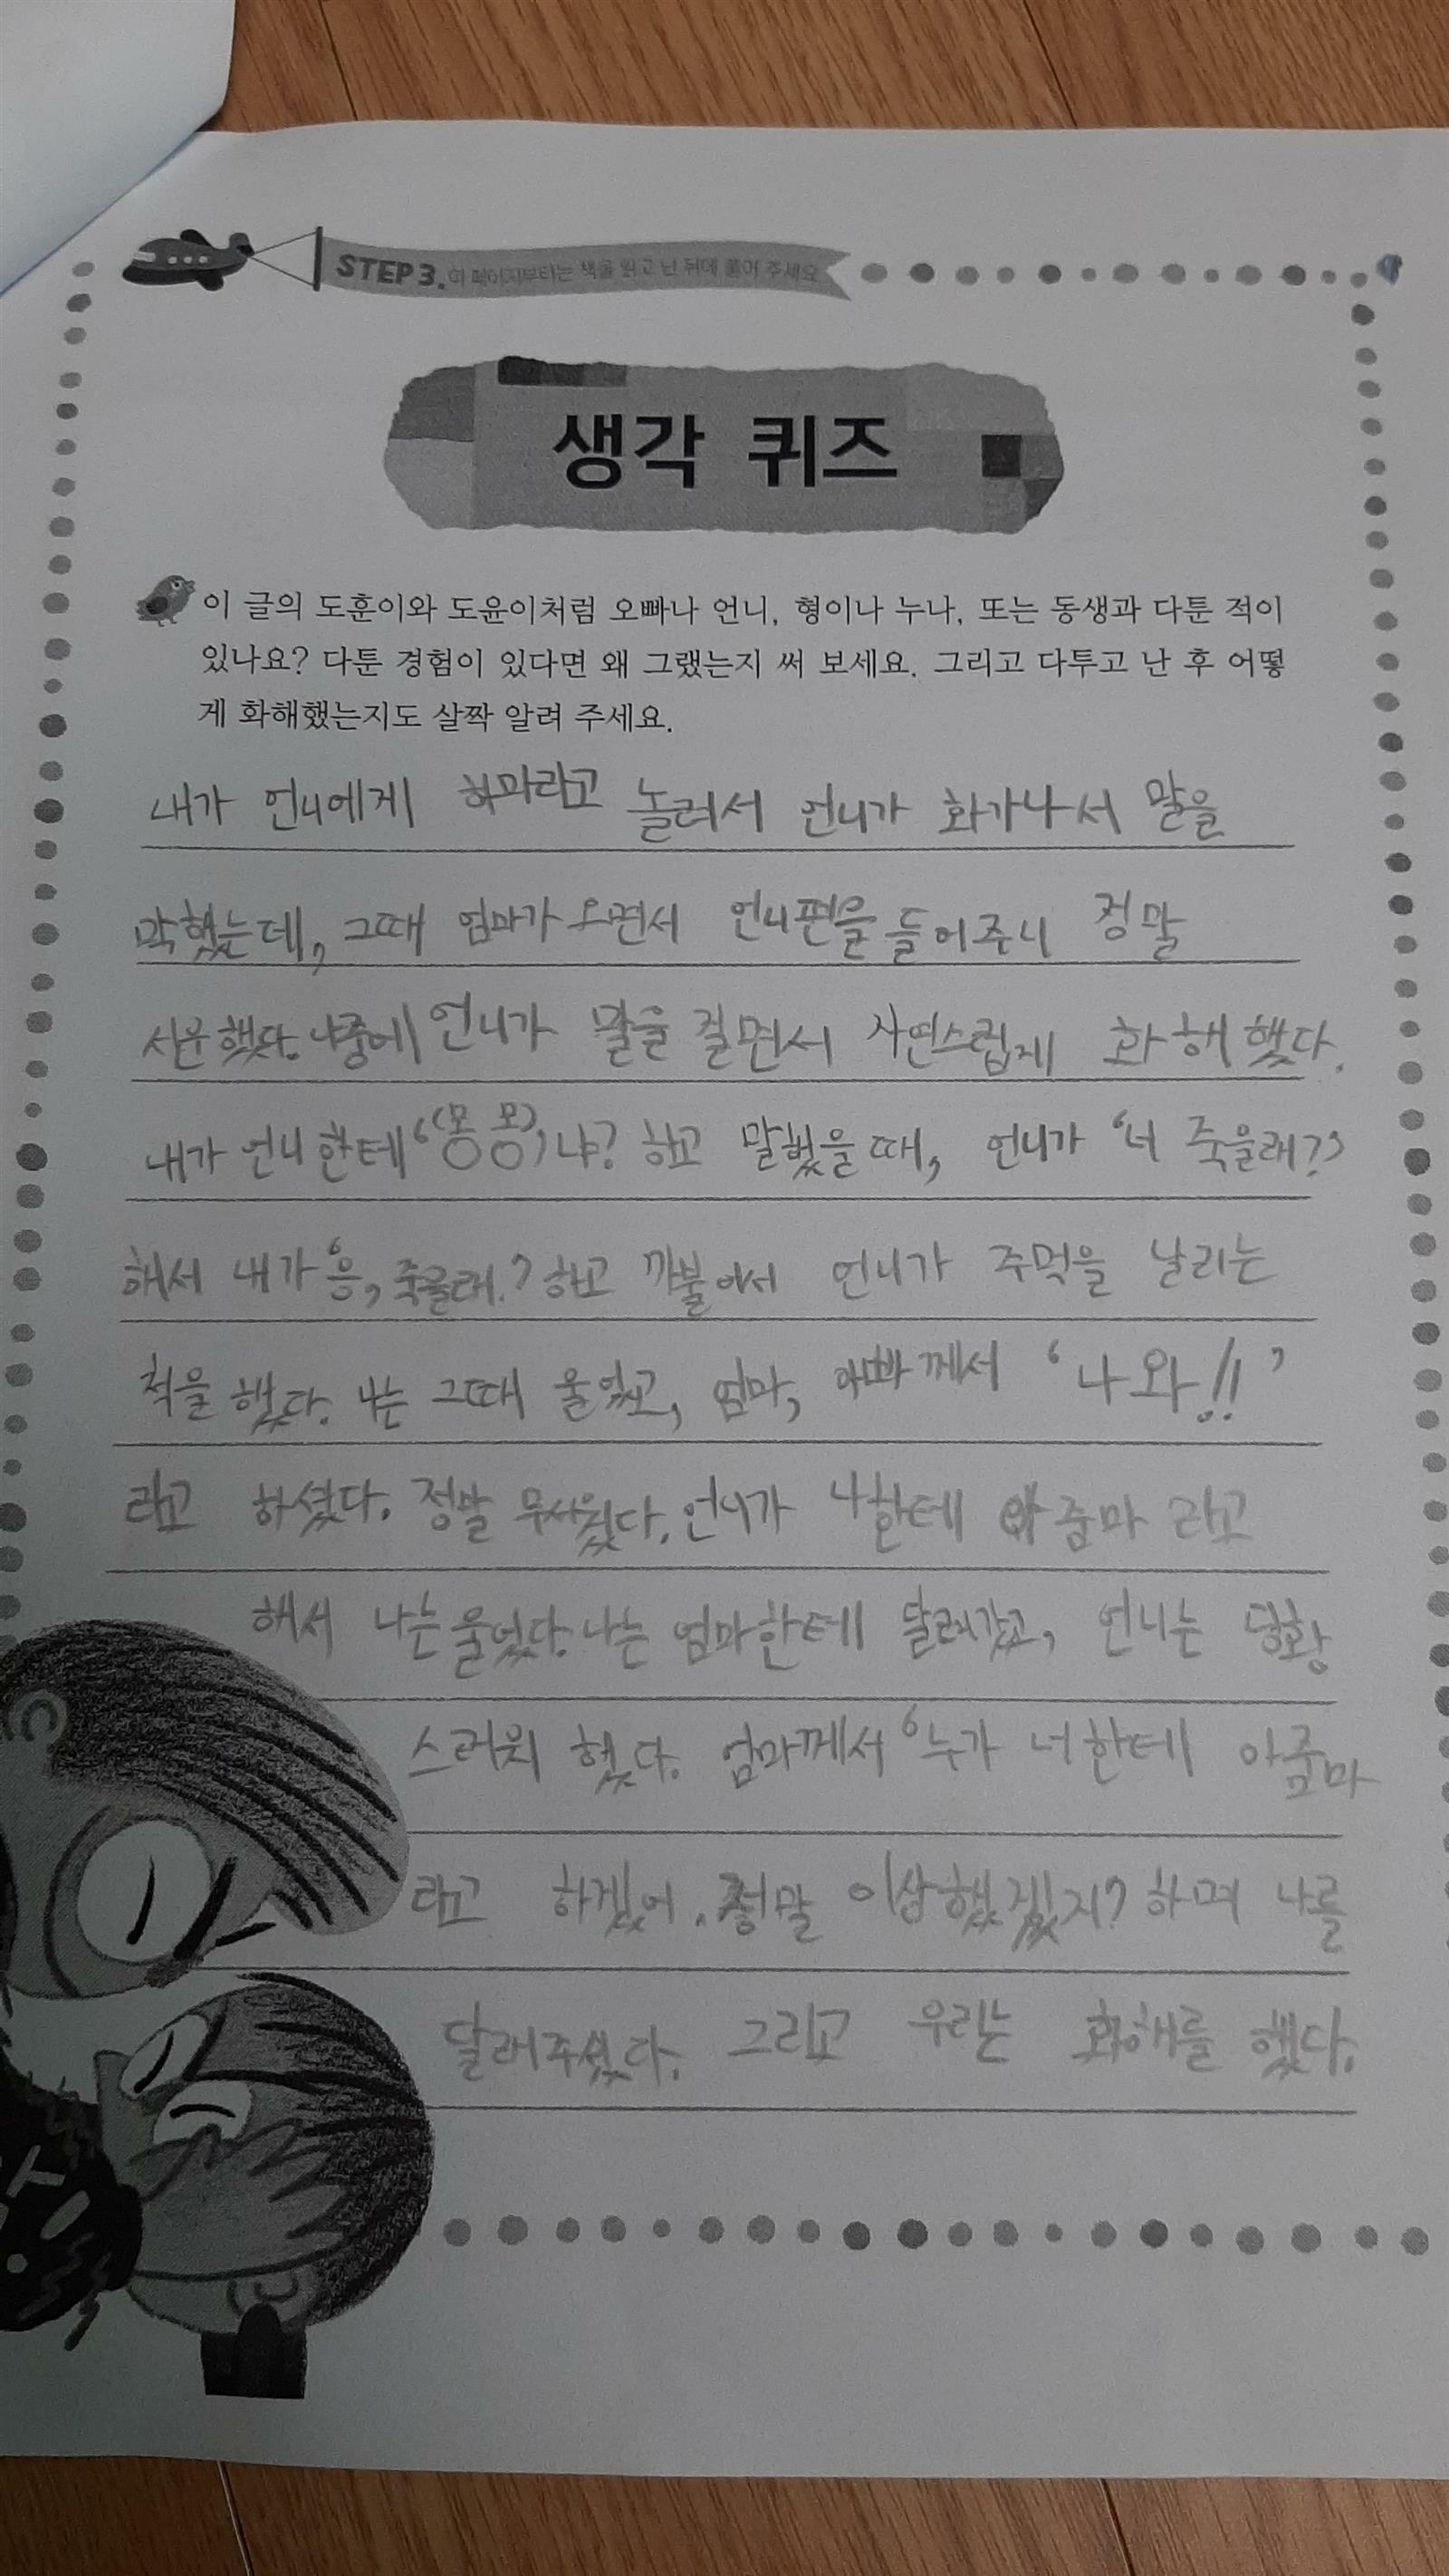 STEP 3. 이 페이지부터는 책을 읽고 난 뒤에 풀어 주세요
생각 퀴즈
이 글의 도훈이와 도윤이처럼 오빠나 언니, 형이나 누나, 또는 동생과 다툰 적이
있나요? 다툰 경험이 있다면 왜 그랬는지 써 보세요. 그리고 다투고 난 후 어떻
게 화해했는지도 살짝 알려 주세요.
내가 언니에게 하마라고 놀려서 언니가 화가나서 말을
막했는데, 그때 엄마가 오면서 언니편을 들어주니 정말
서운했다. 나중에 언니가 말을 걸면서 자연스럽게 화해했다.
내가 언니한테 '(몽몽)'냐? 하고 말했을때, 언니가 '너 죽을래?'
해서 내가 '응, 죽을래.' 하고 까불어서 언니가 주먹을 날리는
척을 했다. 나는 그때 울었고, 엄마, 아빠께서 '나와!!'
라고 하셨다. 정말 무서웠다. 언니가 나한테 아줌마 라고
해서 나는 울었다. 나는 엄마한테 달려갔고, 언니는 당황
스러워 했다. 엄마께서 '누가 너한테 아줌마
라고 하겠어. 정말 이상했겠지? 하며 나를
달래주셨다. 그리고 우리는 화해를 했다.